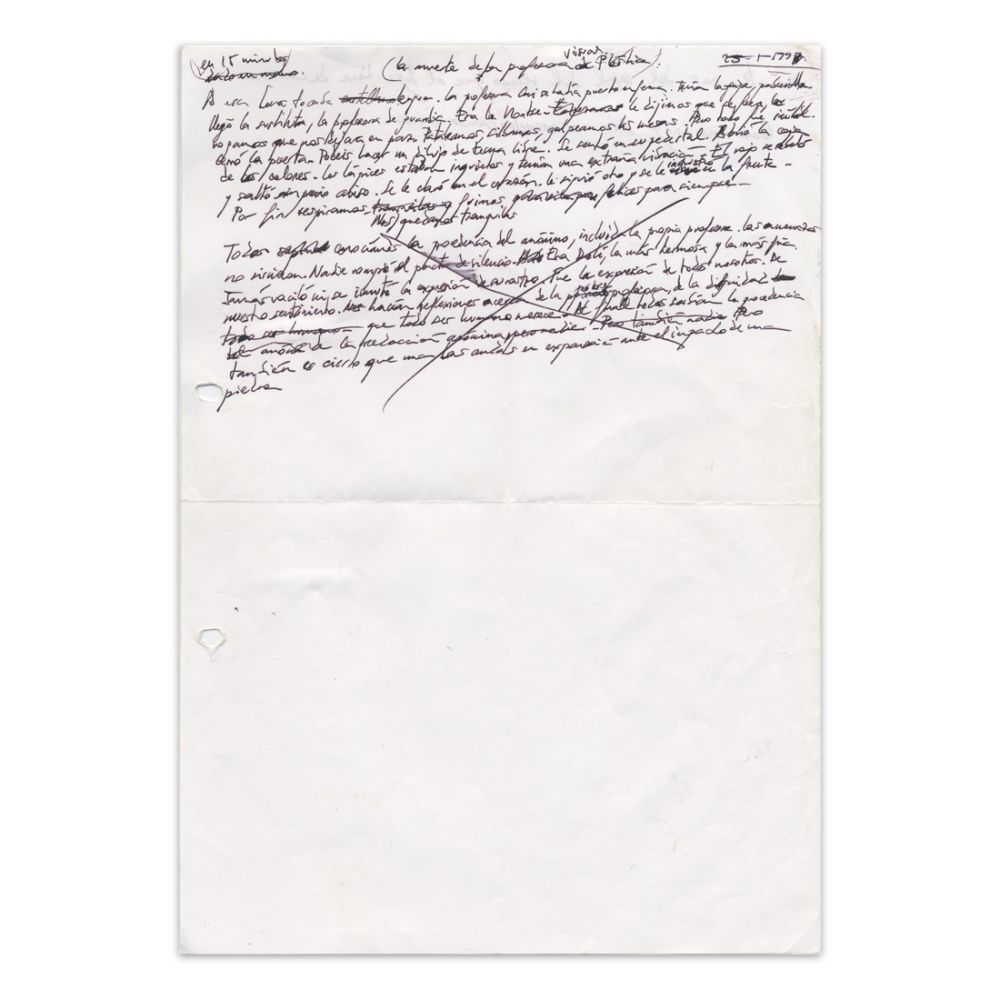 (en 15 minutos
(La muerte de la profesora de Visual y Plástica)
25-1-1997
A esa hora tocaba lengua. La profesora se había puesto enferma. Tenía la gripe, pobrecilla.
Llegó la sustituta, la profesora de guardia. Era la Montse. le dijimos que se fuera, le
rogamos que nos dejara en paz. Pataleamos, chillamos, golpeamos las mesas. Pero todo fue inútil.
Cerró la puerta. Podéis hacer un dibujo de tema libre. Se sentó en su pedestal. Abrió la caja
de los colores. Los lápices estaban inquietos y tenían una extraña vibración. El rojo se
y saltó sin previo aviso. Se le clavó en el corazón. Le siguió otro y se le incrustó en la frente.
Por fin respiramos y fuimos felices para siempre.
Nos quedamos tranquilos
Todos conocíamos la procedencia del anónimo, incluida la propia profesora. Las amenazas
no incidían. Nadie rompió el pacto de silencio. Era Dolí, la más hermosa y la más fría.
Jamás vaciló ni se inmutó la expresión de su rostro. Fue la expresión de todos nosotros. De
nuestro sentimiento. Nos hacían reflexiones acerca de la pobre profesora, de la dignidad
que todo ser humano merece. Al final todos sabían la procedencia
de la redacción anónima, Pero también nadie Pero
también es cierto que unas ondas en expansión ante el impacto de una
piedra